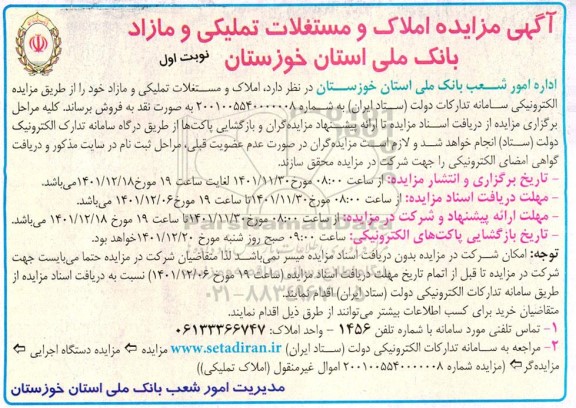 آگهی مزایده املاک و مستغلات تملیکی و مازاد
بانک ملی استان خوزستان
نوبت اول
اداره امور شعب بانک ملی استان خوزستان در نظر دارد، املاک و مستغلات تملیکی و مازاد خود را از طریق مزایده
الکترونیکی سامانه تدارکات دولت (ستاد ایران) به شماره ۲۰۰۱۰۰۵۵۴۰۰۰۰۰۰۸ به صورت نقد به فروش برساند. کلیه مراحل
برگزاری مزایده از دریافت اسناد مزایده تا ارائه پیشنهاد مزایده‌گران و بازگشایی پاکت‌ها از طریق درگاه سامانه تدارک الکترونیک
دولت (ستاد) انجام خواهد شد و لازم است مزایده‌گران در صورت عدم عضویت قبلی، مراحل ثبت نام در سایت مذکور و دریافت
گواهی امضای الکترونیکی را جهت شرکت در مزایده محقق سازند.
- تاریخ برگزاری و انتشار مزایده: از ساعت ۰۸:۰۰ مورخ ۱۴۰۱/۱۱/۳۰ لغایت ساعت ۱۹ مورخ ۱۴۰۱/۱۲/۱۸ می‌باشد.
- مهلت دریافت اسناد مزایده: از ساعت ۰۸:۰۰ مورخ ۱۴۰۱/۱۱/۳۰ تا ساعت ۱۹ مورخ ۱۴۰۱/۱۲/۰۶ می‌باشد.
- مهلت ارائه پیشنهاد و شرکت در مزایده: از ساعت ۰۸:۰۰ مورخ ۱۴۰۱/۱۱/۳۰ تا ساعت ۱۹ مورخ ۱۴۰۱/۱۲/۱۸ می‌باشد.
- تاریخ بازگشایی پاکت‌های الکترونیکی: ساعت ۰۹:۰۰ صبح روز شنبه مورخ ۱۴۰۱/۱۲/۲۰ خواهد بود.
توجه: امکان شرکت در مزایده بدون دریافت اسناد مزایده میسر نمی‌باشد لذا متقاضیان شرکت در مزایده حتما می‌بایست جهت
شرکت در مزایده تا قبل از اتمام تاریخ مهلت دریافت اسناد مزایده (ساعت ۱۹ مورخ ۱۴۰۱/۱۲/۰۶) نسبت به دریافت اسناد مزایده از
طریق سامانه تدارکات الکترونیکی دولت (ستاد ایران) اقدام نمایند.
متقاضیان خرید برای کسب اطلاعات بیشتر می‌توانند از طرق ذیل اقدام نمایند.
۱- تماس تلفنی مورد سامانه با شماره تلفن ۱۴۵۶ - واحد املاک: ۰۶۱۳۳۳۶۶۷۴۷
۲- مراجعه به سامانه تدارکات الکترونیکی دولت (ستاد ایران) www.setadiran.ir مزایده ⇦ مزایده دستگاه اجرایی ⇦
مزایده‌گر ⇦ (مزایده شماره ۲۰۰۱۰۰۵۵۴۰۰۰۰۰۰۸ اموال غیرمنقول (املاک تملیکی))
مدیریت امور شعب بانک ملی استان خوزستان
ParsNamadData
۰۲۱-۸۸۳۴۹۶۷۰-۵